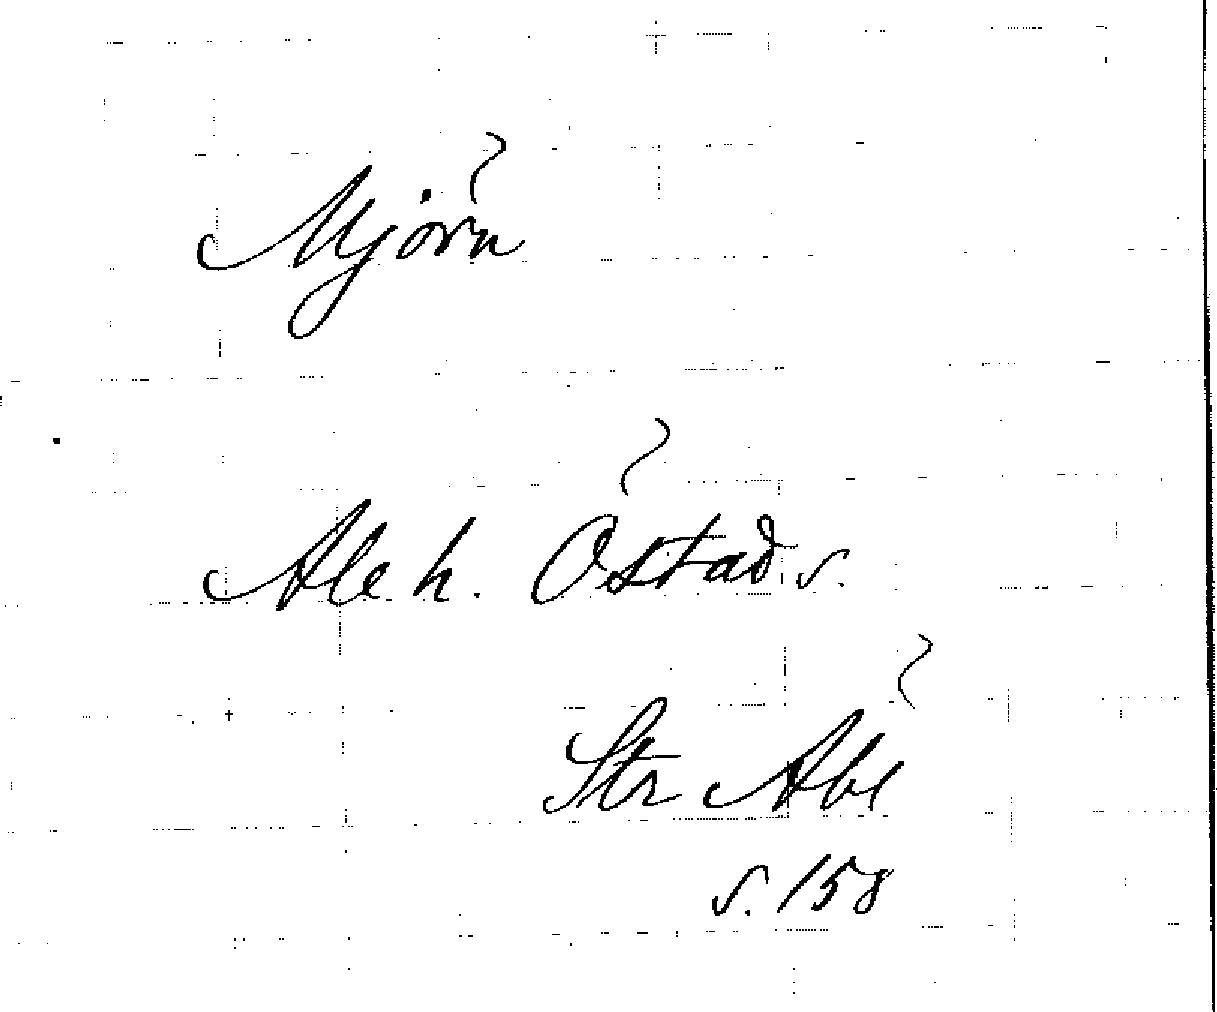 Mjörn
Ale h. Östad s.
Str Abl
s. 158